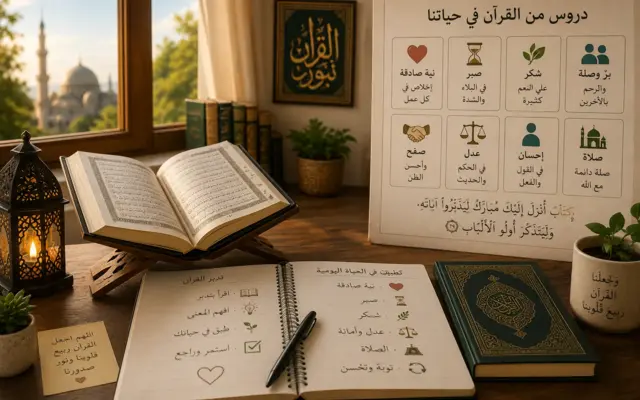 دروس من القرآن في حياتنا
نية صادقة
إخلاص في
كل عمل
صبر
في البلاء
والشدة
شكر
علي النعم
كثيرة
برّ وصلة
والرحم
بالأخرين
صفح
وأحسن
الظن
عدل
في الحكم
والحديث
إحسان
في القول
والفعل
صلاة
صلة دائمة
مع الله
كِتَابٌ أَنْزَلَ إِلَيْكَ مُبَارَكٌ لِيَدَّبَّرُوا آيَاتِهِ.
وَلِيَتَذَكَّرَ أُولُو الْأَلْبَابِ
القرآن
تدبر القرآن
اقرأ بتدبر
افهم المعنى
طبق في حياتك
استمر وراجع
تطبيقت في الحياة اليومية
نية صادقة
صبر
شنكر
عدل وأمانة
الصلاة
توبة وتحسن
اللهم اجعل
القرآن ربيع
قلوبنا ونور
صدورنا
وجعلنا
القرآن
ربيع قلوبنا